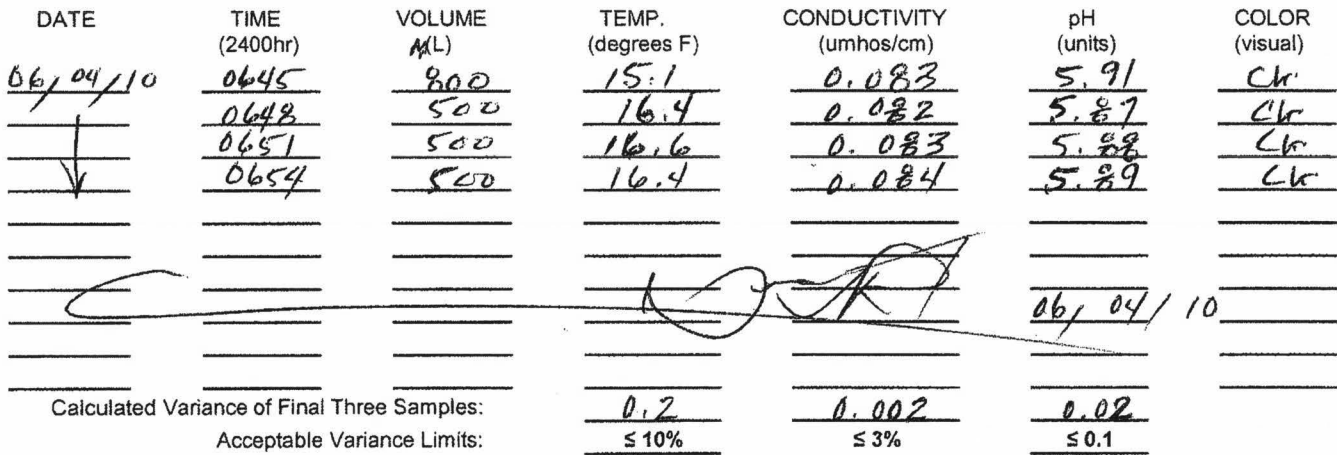 DATE TIME VOLUME TEMP. CONDUCTIVITY pH COLOR
(2400hr) M(L) (degrees F) (umhos/cm) (units) (visual)
06/04/10 0645 800 15.1 0.083 5.91 Clr
0648 500 16.4 0.082 5.87 Clr
0651 500 16.6 0.083 5.88 Clr
0654 500 16.4 0.084 5.89 Clr
06/04/10
Calculated Variance of Final Three Samples: 0.2 0.002 0.02
Acceptable Variance Limits: ≤ 10% ≤ 3% ≤ 0.1